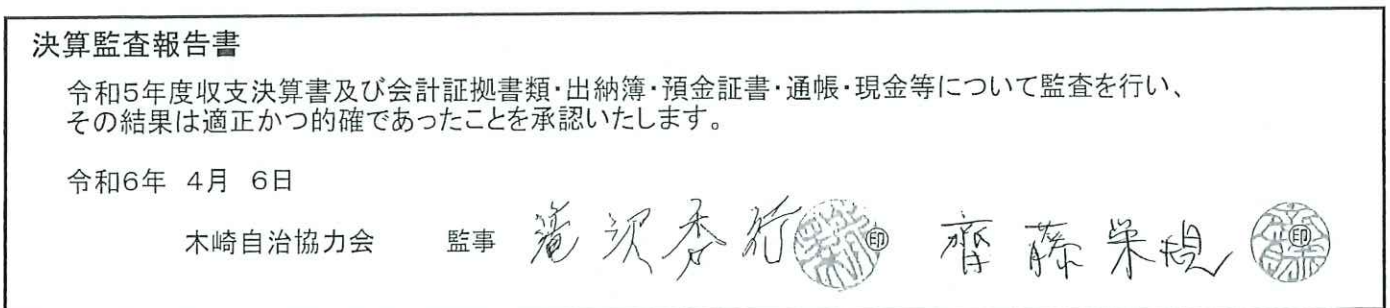 決算監査報告書
令和5年度収支決算書及び会計証拠書類・出納簿・預金証書・通帳・現金等について監査を行い、
その結果は適正かつ的確であったことを承認いたします。
令和6年 4月 6日
木崎自治協力会 監事 滝沢秀行 ㊞ 齊藤栄規 ㊞